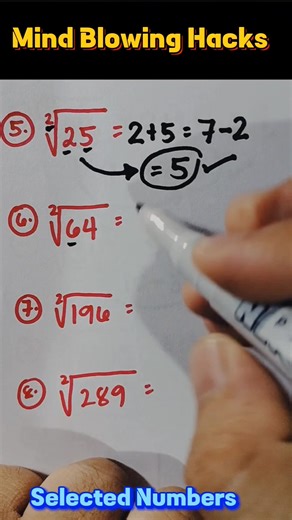 Mind Blowing Hacks
5. ²√25 = 2+5 = 7-2
= 5 ✓
6. ²√64 =
7. ²√196 =
8. ²√289 =
Selected Numbers